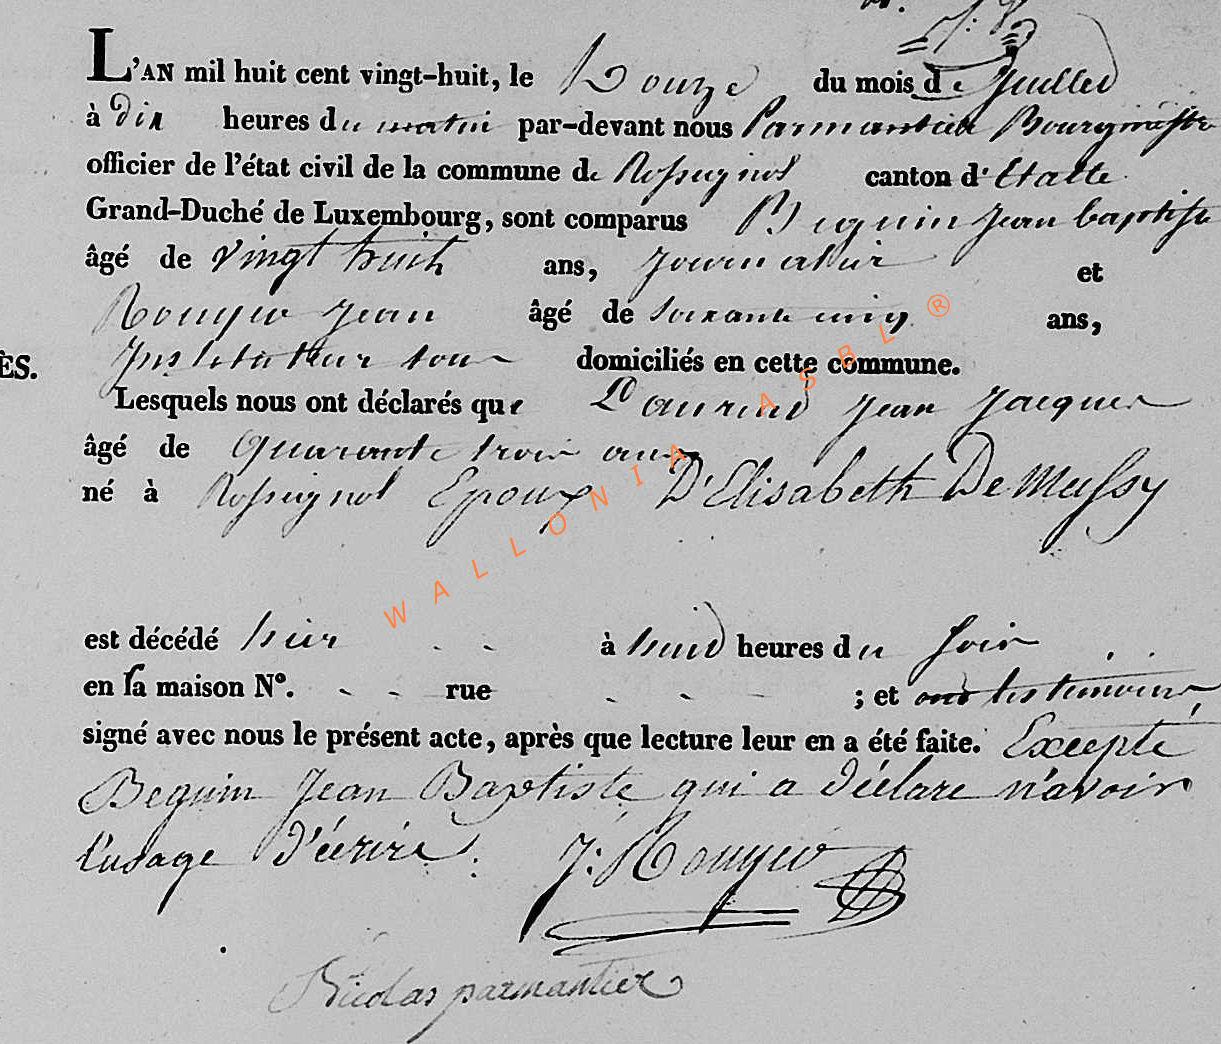 L'AN mil huit cent vingt-huit, le Douze du mois de Juillet
à Dix heures du matin par-devant nous Parmantier Bourgmestre
officier de l'état civil de la commune de Rossignol canton d'Etalle
Grand-Duché de Luxembourg, sont comparus Beguin Jean baptiste
âgé de vingt huit ans, Journalier et
Rougeo Jean âgé de soixante cinq ans,
ÈS. Instituteur tous domiciliés en cette commune.
Lesquels nous ont déclarés que Laurend Jean Jacques
âgé de quarante trois ans
né à Rossignol Epoux D'Elisabeth De Mussy
est décédé hier à huid heures du soir
en sa maison N°. rue ; et ond les temoins
signé avec nous le présent acte, après que lecture leur en a été faite. Excepté
Beguin Jean Baptiste qui a déclare n'avoir
l'usage d'écrire.
J: Rougeo
Nicolas parmantier
WALLONIA ASBL®